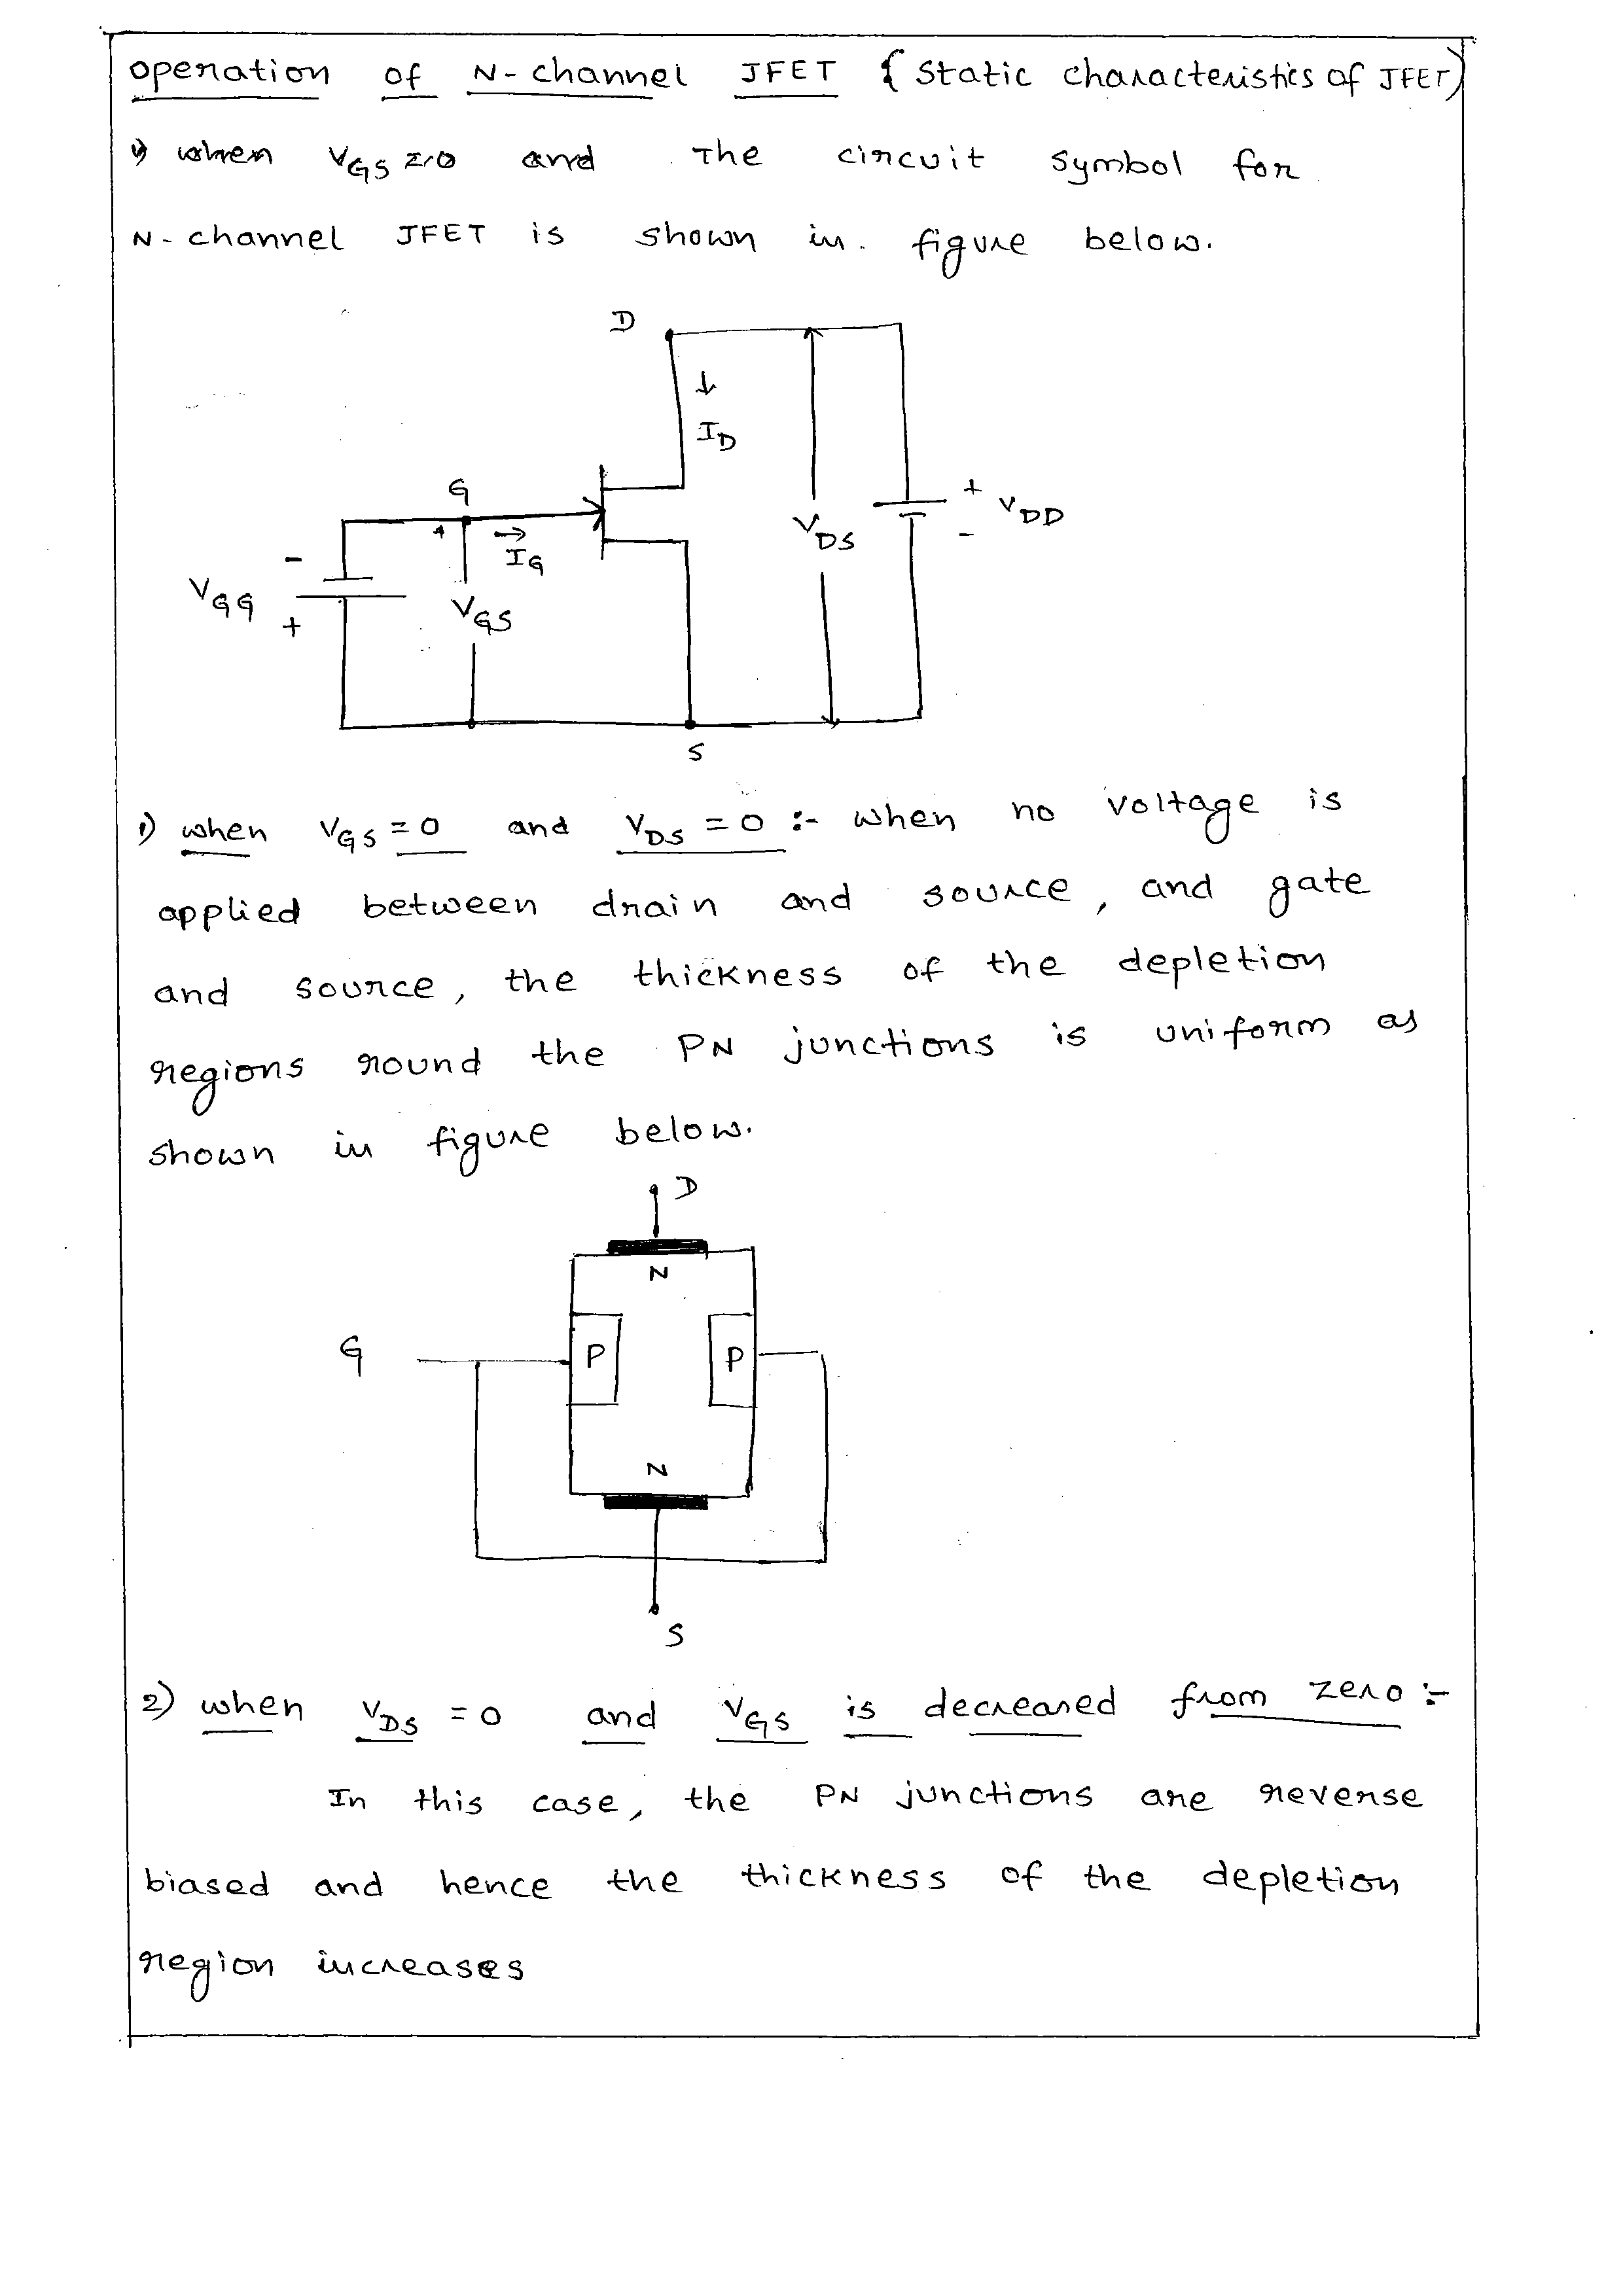 operation of N-channel JFET {static characteristics of JFET)
1) when VGS = 0 and The circuit symbol for
N-channel JFET is shown in figure below.
D
↓
ID
G
+
→
IG
-
VGG
+
VGS
VDS
+
VDD
-
S
1) when VGS = 0 and VDS = 0 :- when no voltage is
applied between drain and source, and gate
and source, the thickness of the depletion
regions round the PN junctions is uniform as
shown in figure below.
D
N
G
P
P
N
S
2) when VDS = 0 and VGS is decreased from zero :-
In this case, the PN junctions are reverse
biased and hence the thickness of the depletion
region increases